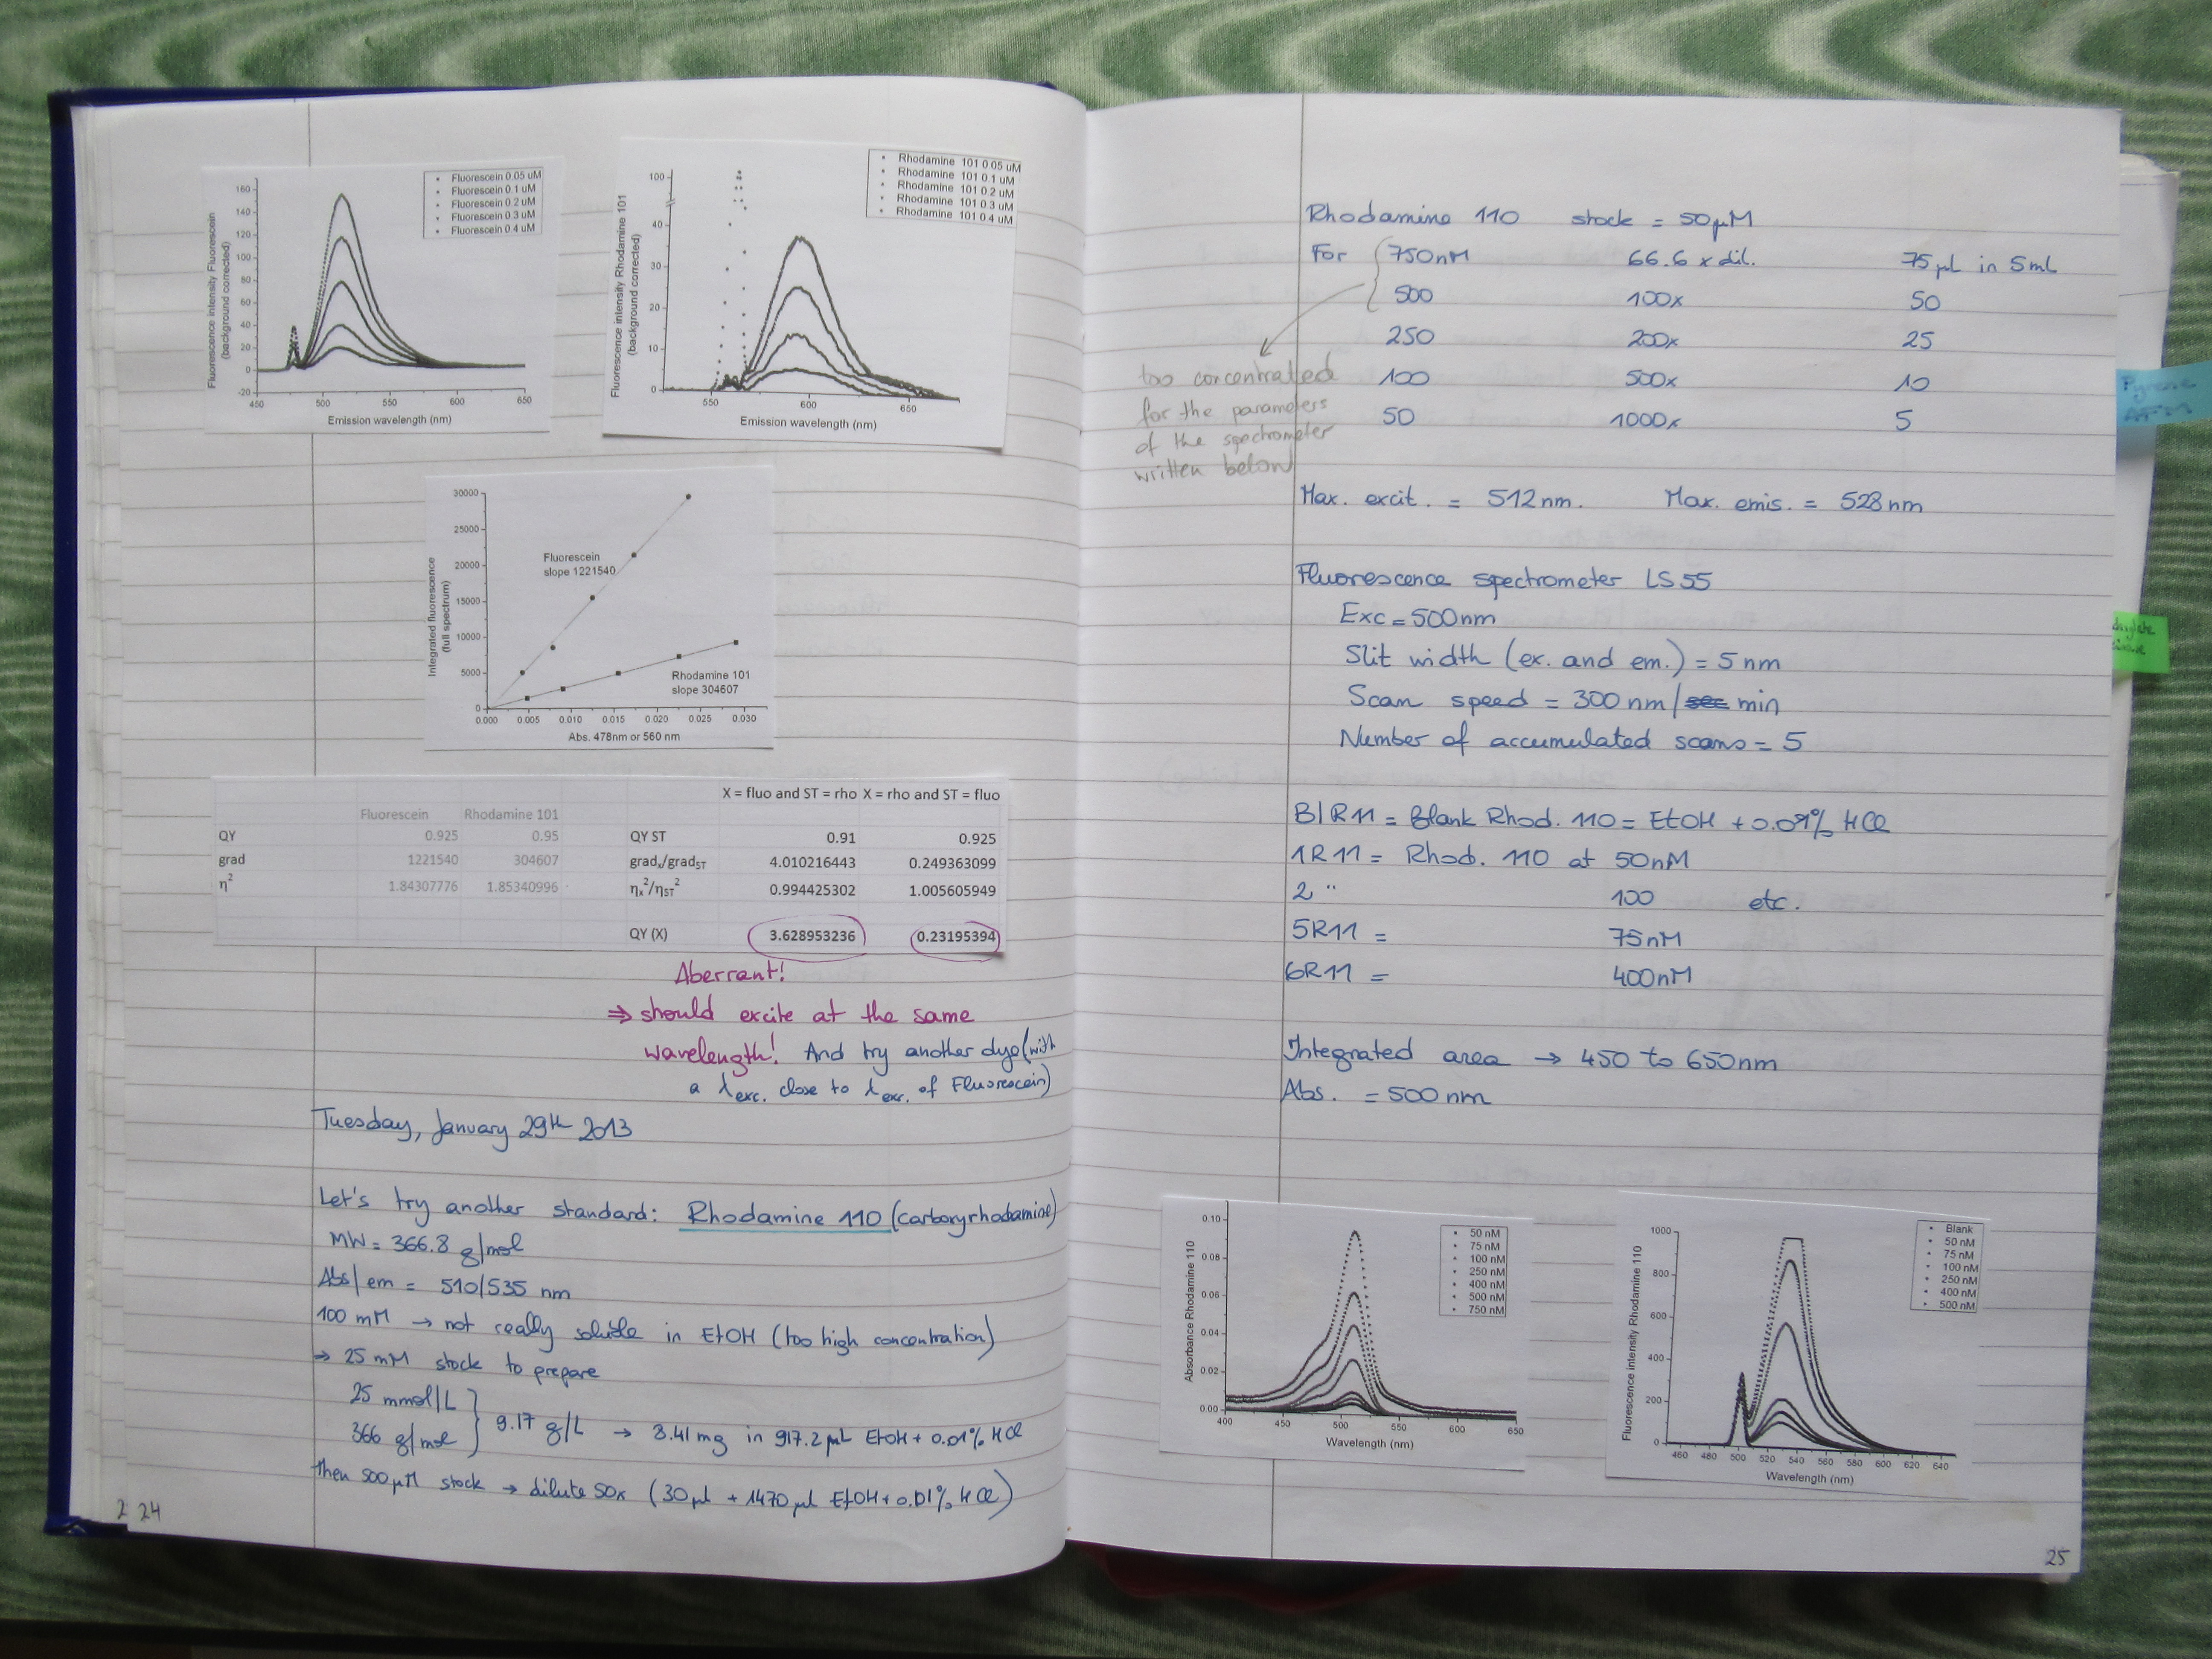 Fluorescence intensity Fluorescein
(background corrected)
160
140
120
100
80
60
40
20
0
-20
450 500 550 600 650
Emission wavelength (nm)
Fluorescein 0.05 uM
Fluorescein 0.1 uM
Fluorescein 0.2 uM
Fluorescein 0.3 uM
Fluorescein 0.4 uM
Fluorescence intensity Rhodamine 101
(background corrected)
100
40
30
20
10
0
550 600 650
Emission wavelength (nm)
Rhodamine 101 0.05 uM
Rhodamine 101 0.1 uM
Rhodamine 101 0.2 uM
Rhodamine 101 0.3 uM
Rhodamine 101 0.4 uM
Integrated fluorescence
(full spectrum)
30000
25000
20000
15000
10000
5000
0
0.000 0.005 0.010 0.015 0.020 0.025 0.030
Abs. 478nm or 560 nm
Fluorescein
slope 1221540
Rhodamine 101
slope 304607
X = fluo and ST = rho X = rho and ST = fluo
Fluorescein Rhodamine 101
QY 0.925 0.95 QY ST 0.91 0.925
grad 1221540 304607 gradx/gradST 4.010216443 0.249363099
η² 1.84307776 1.85340996 ηx²/ηST² 0.994425302 1.005605949
QY (X) 3.628953236 0.23195394
Aberrant!
⇒ should excite at the same
wavelength! And try another dye (with
a λexc. close to λexc. of Fluorescein)
Tuesday, January 29th 2013
Let's try another standard: Rhodamine 110 (carboxyrhodamine)
MW = 366.8 g/mol
Abs/em = 510/535 nm
100 mM → not really soluble in EtOH (too high concentration)
→ 25 mM stock to prepare
25 mmol/L
366 g/mol } 9.17 g/L → 8.41 mg in 917.2 µL EtOH + 0.01% HCl
then 500µM stock → dilute 50x (30µL + 1470 µL EtOH + 0.01% HCl)
2 24
Rhodamine 110 stock = 50µM
For 750nM 66.6 x dil. 75µL in 5mL
500 100x 50
250 200x 25
100 500x 10
50 1000x 5
too concentrated
for the parameters
of the spectrometer
written below
Max. excit. = 512nm. Max. emis. = 528nm
Fluorescence spectrometer LS55
Exc = 500nm
Slit width (ex. and em.) = 5nm
Scan speed = 300nm/sec min
Number of accumulated scans = 5
BlR11 = Blank Rhod. 110 = EtOH + 0.01% HCl
1R11 = Rhod. 110 at 50nM
2 " 100 etc.
5R11 = 75nM
6R11 = 400nM
Integrated area → 450 to 650nm
Abs. = 500nm
Absorbance Rhodamine 110
0.10
0.08
0.06
0.04
0.02
0.00
400 450 500 550 600 650
Wavelength (nm)
50 nM
75 nM
100 nM
250 nM
400 nM
500 nM
750 nM
Fluorescence intensity Rhodamine 110
1000
800
600
400
200
0
460 480 500 520 540 560 580 600 620 640
Wavelength (nm)
Blank
50 nM
75 nM
100 nM
250 nM
400 nM
500 nM
25
Pyrene